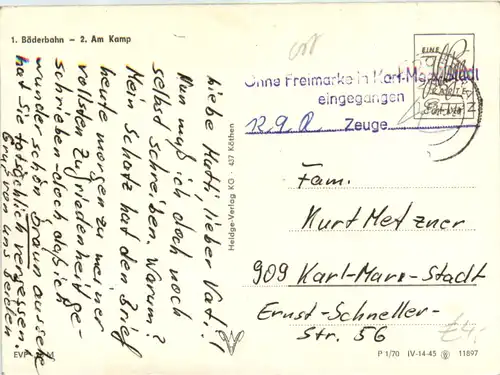 1. Bäderbahn – 2. Am Kamp
Liebe Mutti, lieber Vati!
Nun muß ich doch noch
selbst schreiben. Warum?
Mein Schatz hat den Brief
heute morgen zu meiner
vollsten Zufriedenheit ge-
schrieben doch daß ich
wunderschön braun aussehe
hat sie tatsächlich vergessen.
Gruß von uns beiden
EVP
Heldge-Verlag KG · 437 Köthen
Ohne Freimarke in Karl-Marx-Stadt
eingegangen
Zeuge
EINE
KARTE
Fam.
Kurt Metzner
909 Karl-Marx-Stadt
Ernst-Schneller-
Str. 56
P 1/70 IV-14-45 11897